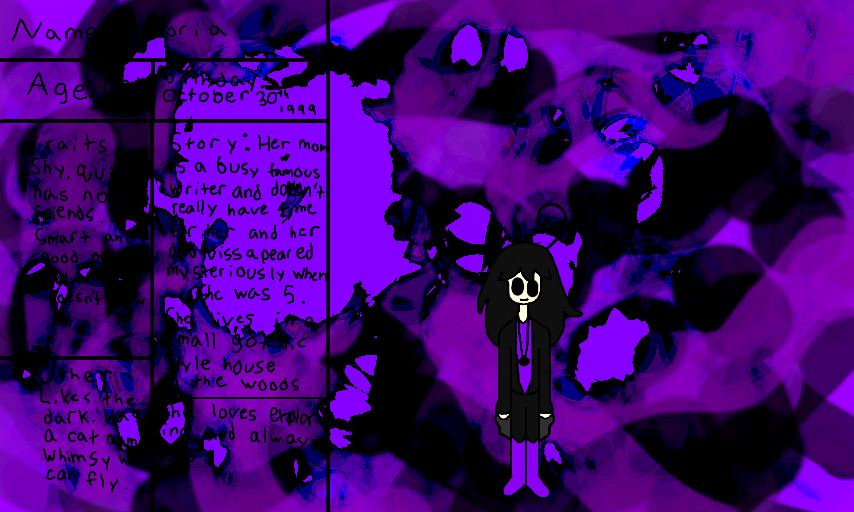 Name oria
Age
Birthday:
October 30th
1999
Traits
Shy, qu
has no
friends.
Smart and
good
doesn't
Story: Her mom
is a busy famous
writer and doesn't
really have time
for her and her
dad dissapeared
mysteriously when
she was 5.
She lives in a
small gothic
style house
in the woods
Other:
Likes the
dark. Has
a cat named
Whimsy w
can fly.
She loves explor
ing and alway